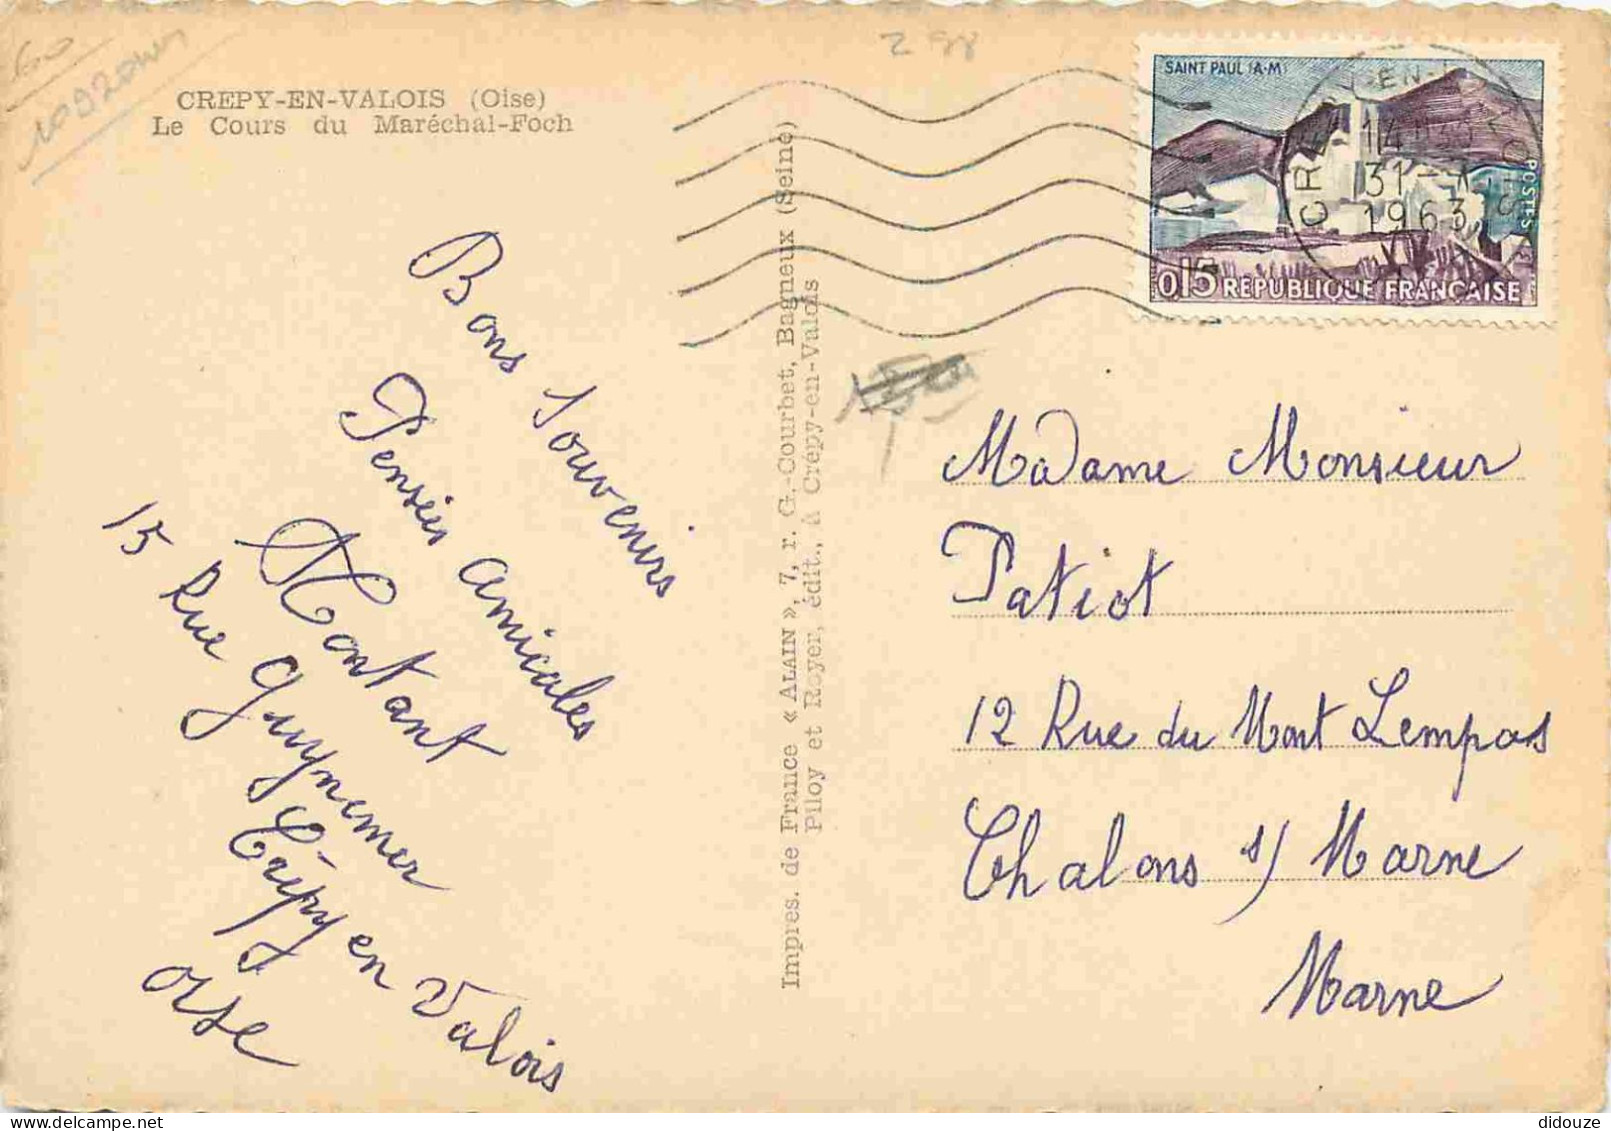 60
CREPY-EN-VALOIS (Oise)
Le Cours du Maréchal-Foch
Bons Souvenirs
Pensées amicales
Montant
15 Rue Guynemer
Crépy en Valois
Oise
Impres. de France « ALAIN », 7, r. G.-Courbet, Bagneux (Seine)
Piloy et Royer, édit., à Crépy-en-Valois
SAINT PAUL (A-M)
POSTES
0,15 REPUBLIQUE FRANÇAISE
14 H30
1963
Madame Monsieur
Patiot
12 Rue du Mont Lempas
Chalons s/ Marne
Marne
didouze